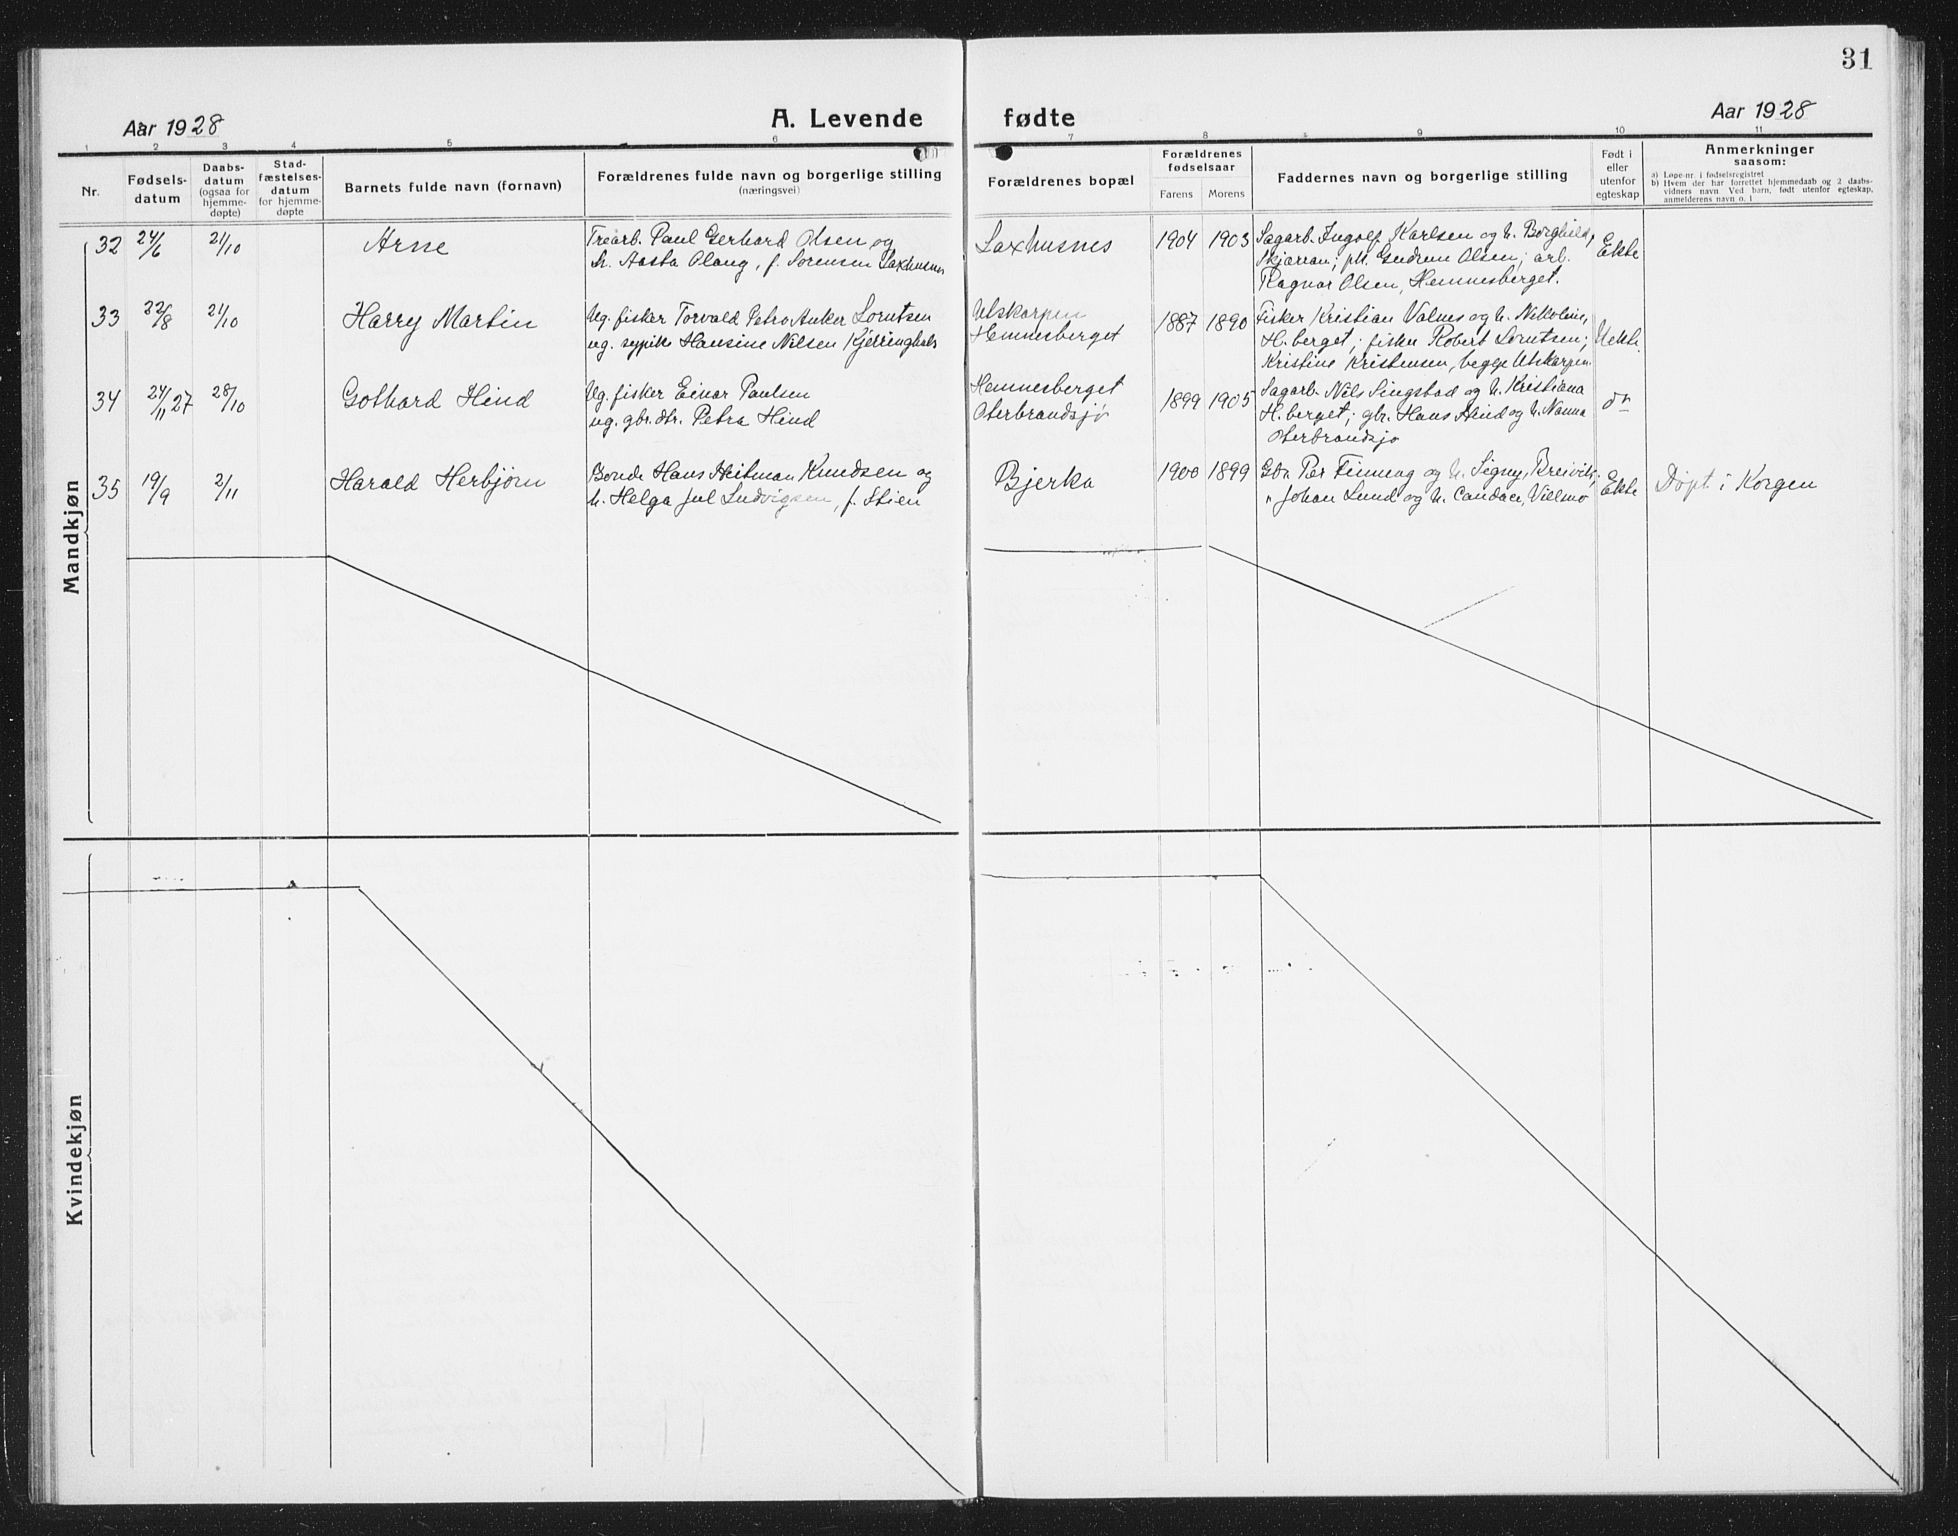 31
Aar 1928
A. Levende fødte
Aar 1928
1 2 3 4 5 6 7 8 9 10 11
Nr.
Fødsels-
datum
Daabs-
datum
(ogsaa for
hjemme-
døpte)
Stad-
fæstelses-
datum
for hjemme-
døpte
Barnets fulde navn (fornavn)
Forældrenes fulde navn og borgerlige stilling
(næringsvei)
Forældrenes bopæl
Forældrenes
fødselsaar
Farens Morens
Faddernes navn og borgerlige stilling
Født i
eller
utenfor
egteskap
Anmerkninger
saasom:
a) Løpe-nr. i fødselsregistret
b) Hvem der har forrettet hjemmedaab og 2 daabs-
vidners navn. Ved barn, født utenfor egteskap,
anmelderens navn o. l
Mandkjøn
32 24/6 21/10 Arne
Trearb. Paul Gerhard Olsen og
h. Aasta Olaug, f. Sørensen Laxhusnes
Laxhusnes
1904 1903
Sagarb. Ingolf Karlsen og h. Borghild,
; pk. Gudrun Olsen; arb.
Ragnar Olsen, Hemnesberget.
Ekte
33 22/8 21/10 Harry Martin
Ug. fisker Torvald Petro Anker Lorntsen
ug. sypike Hansine Nilsen Kjerringhals
Utskarpen
Hemnesberget
1887 1890
Fisker Kristian Valnes og h. Nikoline,
H.berget; fisker Robert Lorntsen;
Kristine Kristensen, begge Utskarpen
Uekte
34 24/11 27 28/10 Gothard Hind
Ug. fisker Einar Paulsen
ug. gbr.dtr. Petra Hind
Hemnesberget
Oterbrandsjø
1899 1905
Sagarb. Nils Singstad og h. Kristiana
H.berget; gbr. Hans Hind og h. Nanna
Oterbrandsjø
do
35 19/9 2/11 Harald Herbjørn
Bonde Hans Heitman Knudsen og
h. Helga Jul Ludvigsen, f. Stien
Bjerka
1900 1899
Gbr. Per Finneng og h. Signy, Breivik;
" Johan Lund og h. Candace, Villmo
Ekte
Døpt i Korgen
Kvindekjøn